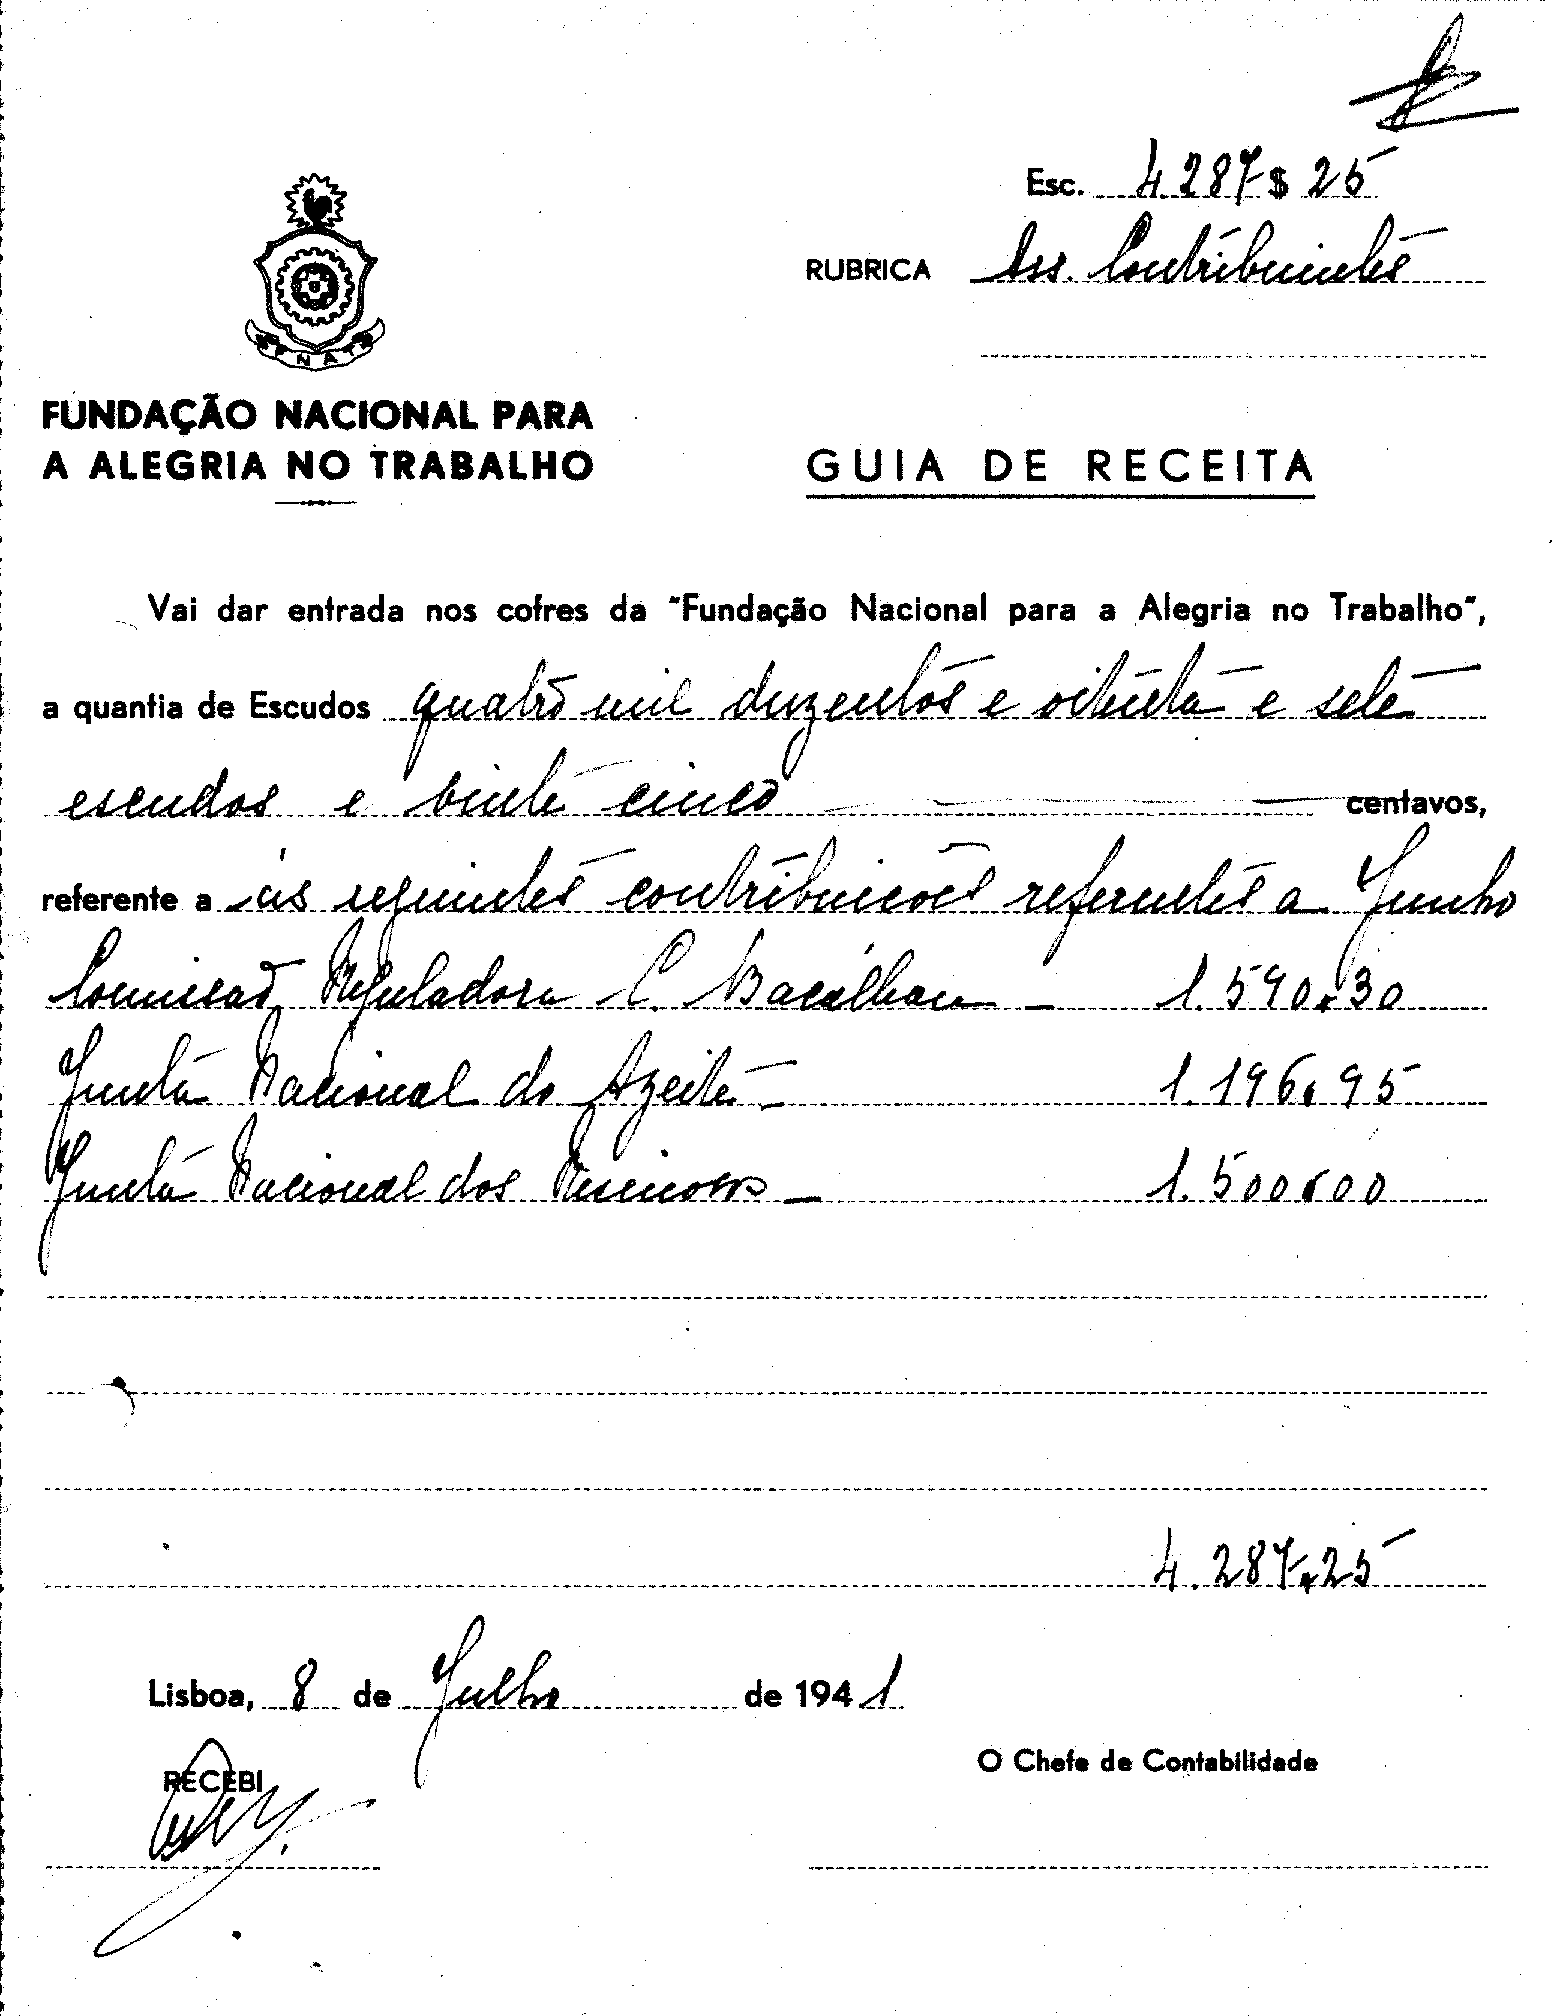 Esc. 4.287$25
RUBRICA Ass. Contribuintes
F N A T
FUNDAÇÃO NACIONAL PARA
A ALEGRIA NO TRABALHO
GUIA DE RECEITA
Vai dar entrada nos cofres da "Fundação Nacional para a Alegria no Trabalho",
a quantia de Escudos quatro mil duzentos e oitenta e sete
escudos e vinte cinco centavos,
referente a às seguintes contribuições referentes a Junho
Comissão Reguladora C. Bacalhau — 1.590$30
Junta Nacional do Azeite — 1.196$95
Junta Nacional dos Resinosos — 1.500$00
4.287$25
Lisboa, 8 de Julho de 1941
RECEBI
O Chefe de Contabilidade